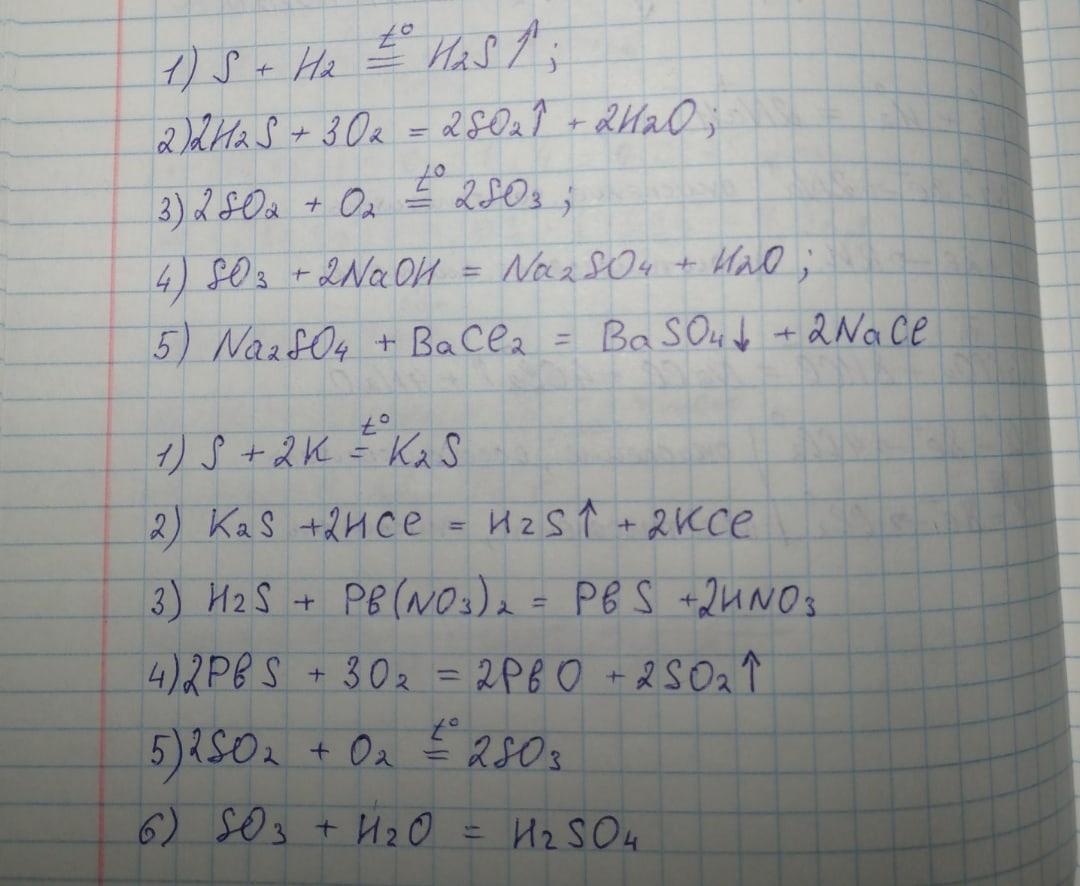 1) S + H2 =t°= H2S↑;
2) 2H2S + 3O2 = 2SO2↑ + 2H2O;
3) 2SO2 + O2 =t°= 2SO3;
4) SO3 + 2NaOH = Na2SO4 + H2O;
5) Na2SO4 + BaCl2 = BaSO4↓ + 2NaCl
1) S + 2K =t°= K2S
2) K2S + 2HCl = H2S↑ + 2KCl
3) H2S + Pb(NO3)2 = PbS + 2HNO3
4) 2PbS + 3O2 = 2PbO + 2SO2↑
5) 2SO2 + O2 =t°= 2SO3
6) SO3 + H2O = H2SO4